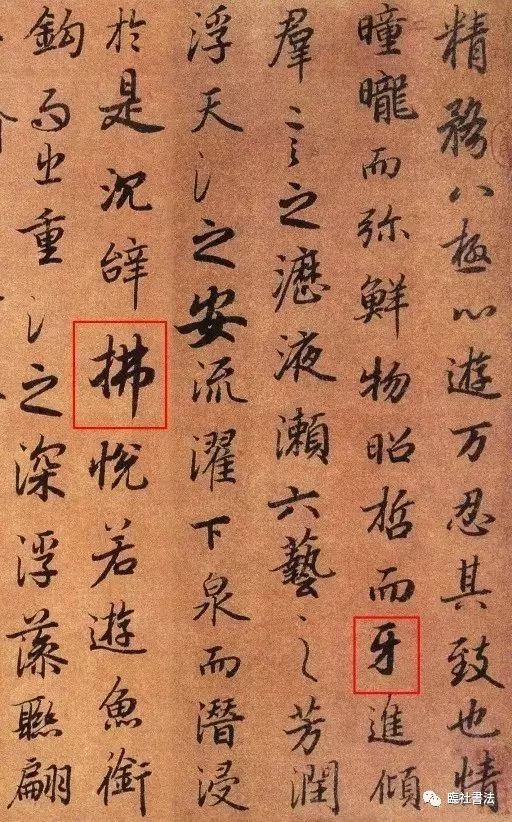 精務八極心遊万忍其致也情
曈曨而弥鮮物昭晢而牙進傾
羣言之瀝液瀨六藝之芳潤
浮天之安流濯下泉而潛浸
於是沉辝拂悅若遊魚銜
鈎而出重之深浮藻聮翩
臨社書法